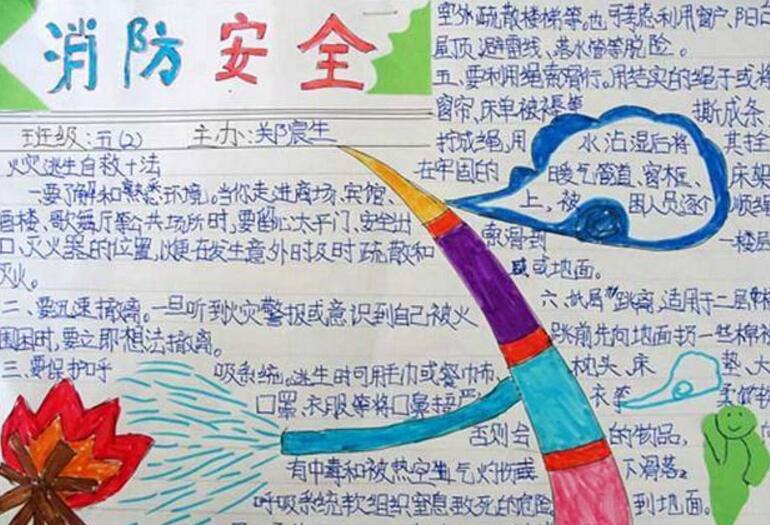 消防安全
班级:五(2) 主办:郑宸生
火灾逃生自救十法
一、要了解和熟悉环境。当你走进商场、宾馆、
酒楼、歌舞厅等公共场所时,要留心太平门、安全出
口、灭火器的位置,以便在发生意外时及时疏散和
灭火。
二、要迅速撤离。一旦听到火灾警报或意识到自己被火
围困时,要立即想法撤离。
三、要保护呼吸系统。逃生时可用毛巾或餐巾布、
口罩、衣服等将口鼻捂严,
否则会
有中毒和被热空气灼伤
呼吸系统软组织窒息致死的危险
室外疏散楼梯等。也可考虑利用窗户、阳台
屋顶、避雷线、落水管等脱险。
五、要利用绳索滑行。用结实的绳子或将
窗帘、床单被褥等 撕成条,
拧成绳,用 水沾湿后将 其拴
在牢固的 暖气管道、窗框、 床架
上,被 困人员逐个 顺绳
索滑到 一楼层
或地面。
六、低层 跳离,适用于二层楼
跳前先向地面扔一些棉被
枕头、床 垫、大
衣等 柔软
的物品,
下滑落
到地面。